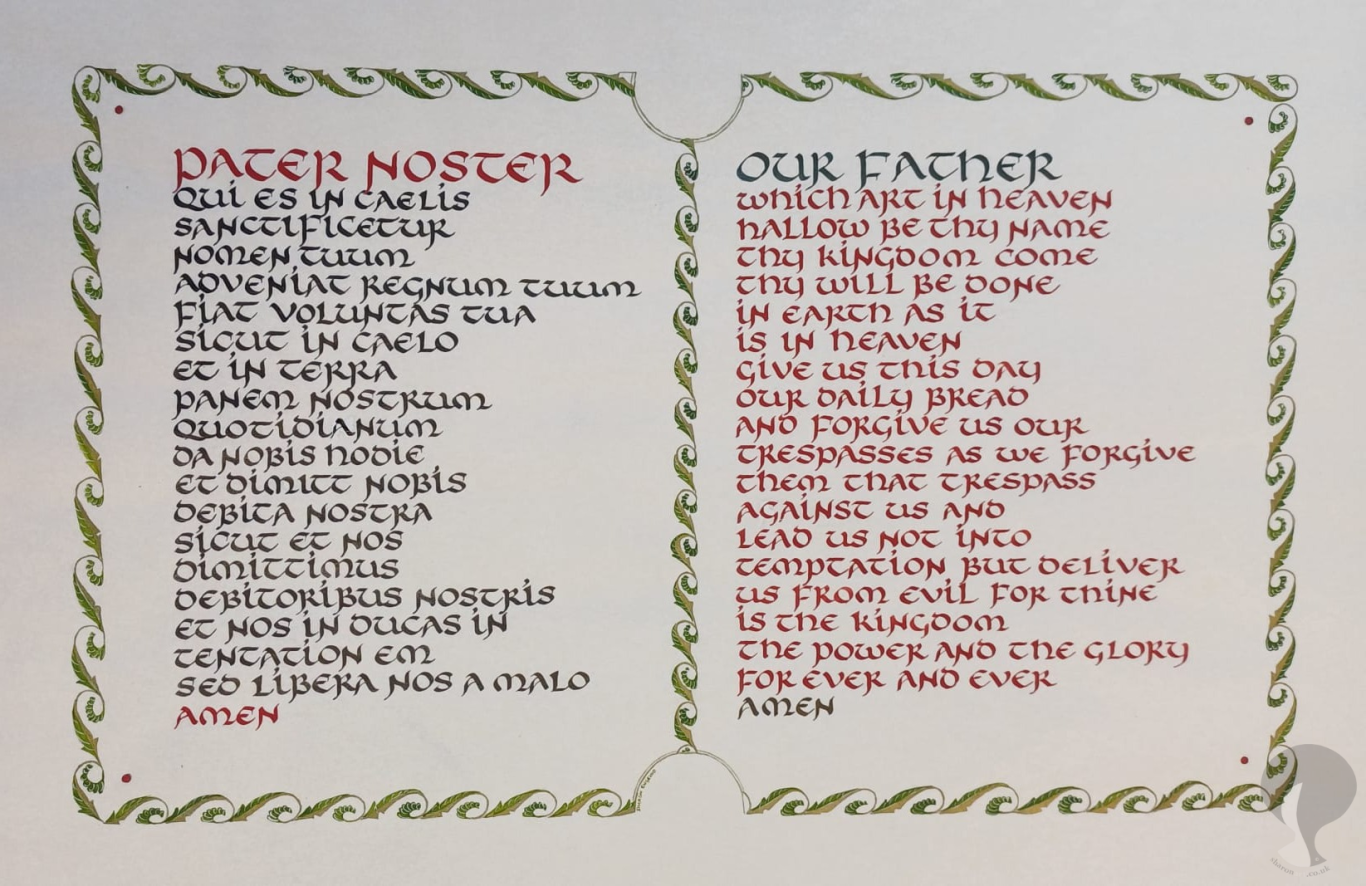 PATER NOSTER
QUI ES IN CAELIS
SANCTIFICETUR
NOMEN TUUM
ADVENIAT REGNUM TUUM
FIAT VOLUNTAS TUA
SICUT IN CAELO
ET IN TERRA
PANEM NOSTRUM
QUOTIDIANUM
DA NOBIS HODIE
ET DIMITT NOBIS
DEBITA NOSTRA
SICUT ET NOS
DIMITTIMUS
DEBITORIBUS NOSTRIS
ET NOS IN DUCAS IN
TENTATION EM
SED LIBERA NOS A MALO
AMEN
OUR FATHER
WHICH ART IN HEAVEN
HALLOW BE THY NAME
THY KINGDOM COME
THY WILL BE DONE
IN EARTH AS IT
IS IN HEAVEN
GIVE US THIS DAY
OUR DAILY BREAD
AND FORGIVE US OUR
TRESPASSES AS WE FORGIVE
THEM THAT TRESPASS
AGAINST US AND
LEAD US NOT INTO
TEMPTATION BUT DELIVER
US FROM EVIL FOR THINE
IS THE KINGDOM
THE POWER AND THE GLORY
FOR EVER AND EVER
AMEN
.co.uk